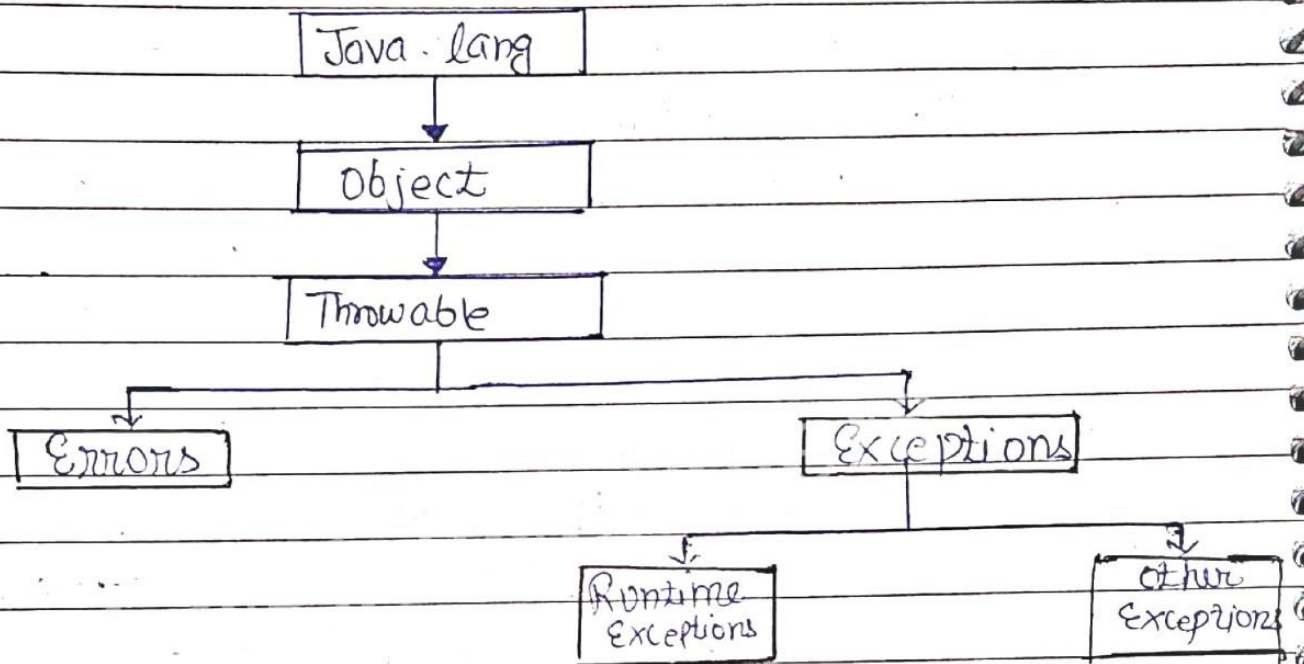 Java. lang
Object
Throwable
Errors
Exceptions
Runtime
Exceptions
other
Exceptions